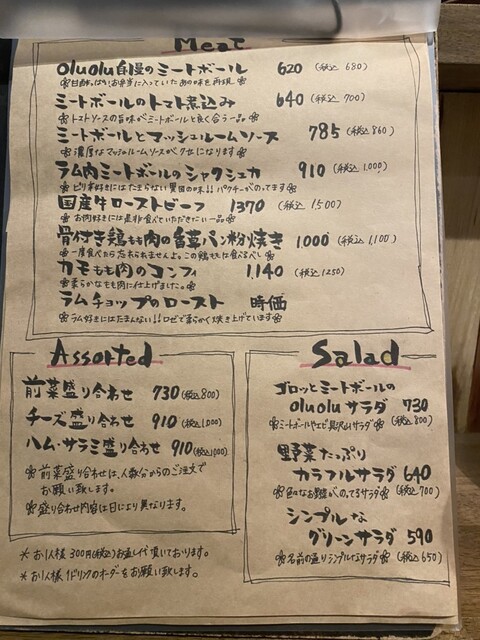 Meat
oluolu自慢のミートボール 620 (税込 680)
※甘酢っぱいお弁当に入っていたあの味を再現※
ミートボールのトマト煮込み 640 (税込 700)
※トマトソースの旨味がミートボールと良く合う一品※
ミートボールとマッシュルームソース 785 (税込 860)
※濃厚なマッシュルームソースがクセになります※
ラム肉ミートボールのシャクシュカ 910 (税込 1,000)
※ピリ辛好きにはたまらない異国の味!! パクチーがのってます※
国産牛ローストビーフ 1370 (税込 1,500)
※お肉好きには是非食べていただきたい一品※
骨付き鶏もも肉の香草パン粉焼き 1000 (税込 1,100)
※一度食べたら忘れられませんよ。この鶏ももは食べるべし※
カモもも肉のコンフィ 1,140 (税込 1250)
※柔らかなもも肉に仕上げました。※
ラムチョップのロースト 時価
※ラム好きにはたまんない!! ロゼで柔らかく焼き上げています※
Assorted
前菜盛り合わせ 730 (税込 800)
チーズ盛り合わせ 910 (税込 1,000)
ハム・サラミ盛り合わせ 910 (税込 1,000)
※前菜盛り合わせは、人数分からのご注文で
お願い致します。
※盛り合わせ内容は日により異なります。
*お1人様 300円(税込)お通し代頂いております。
*お1人様 1ドリンクのオーダーをお願い致します。
Salad
ゴロッとミートボールの
oluoluサラダ 730
※ミートボールやエビ 具沢山サラダ※ (税込 800)
野菜たっぷり
カラフルサラダ 640
※色んなお野菜がのってるサラダ※ (税込 700)
シンプルな
グリーンサラダ 590
※名前の通りシンプルなサラダ※ (税込 650)